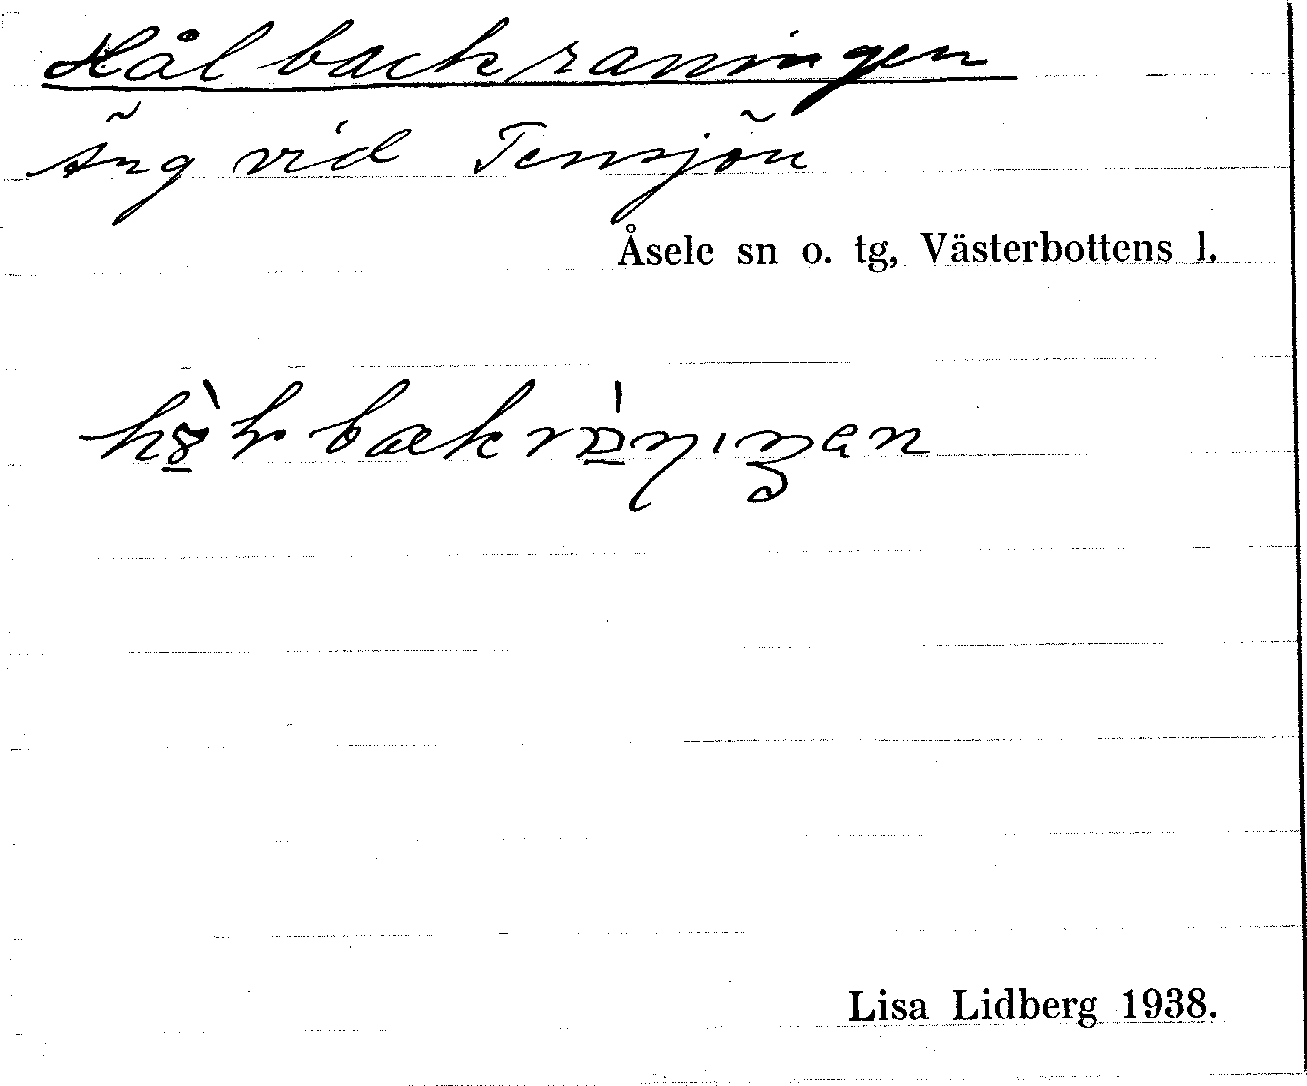 Hålbackraningen
Äng vid Tensjön
Åsele sn o. tg, Västerbottens l.
Lisa Lidberg 1938.